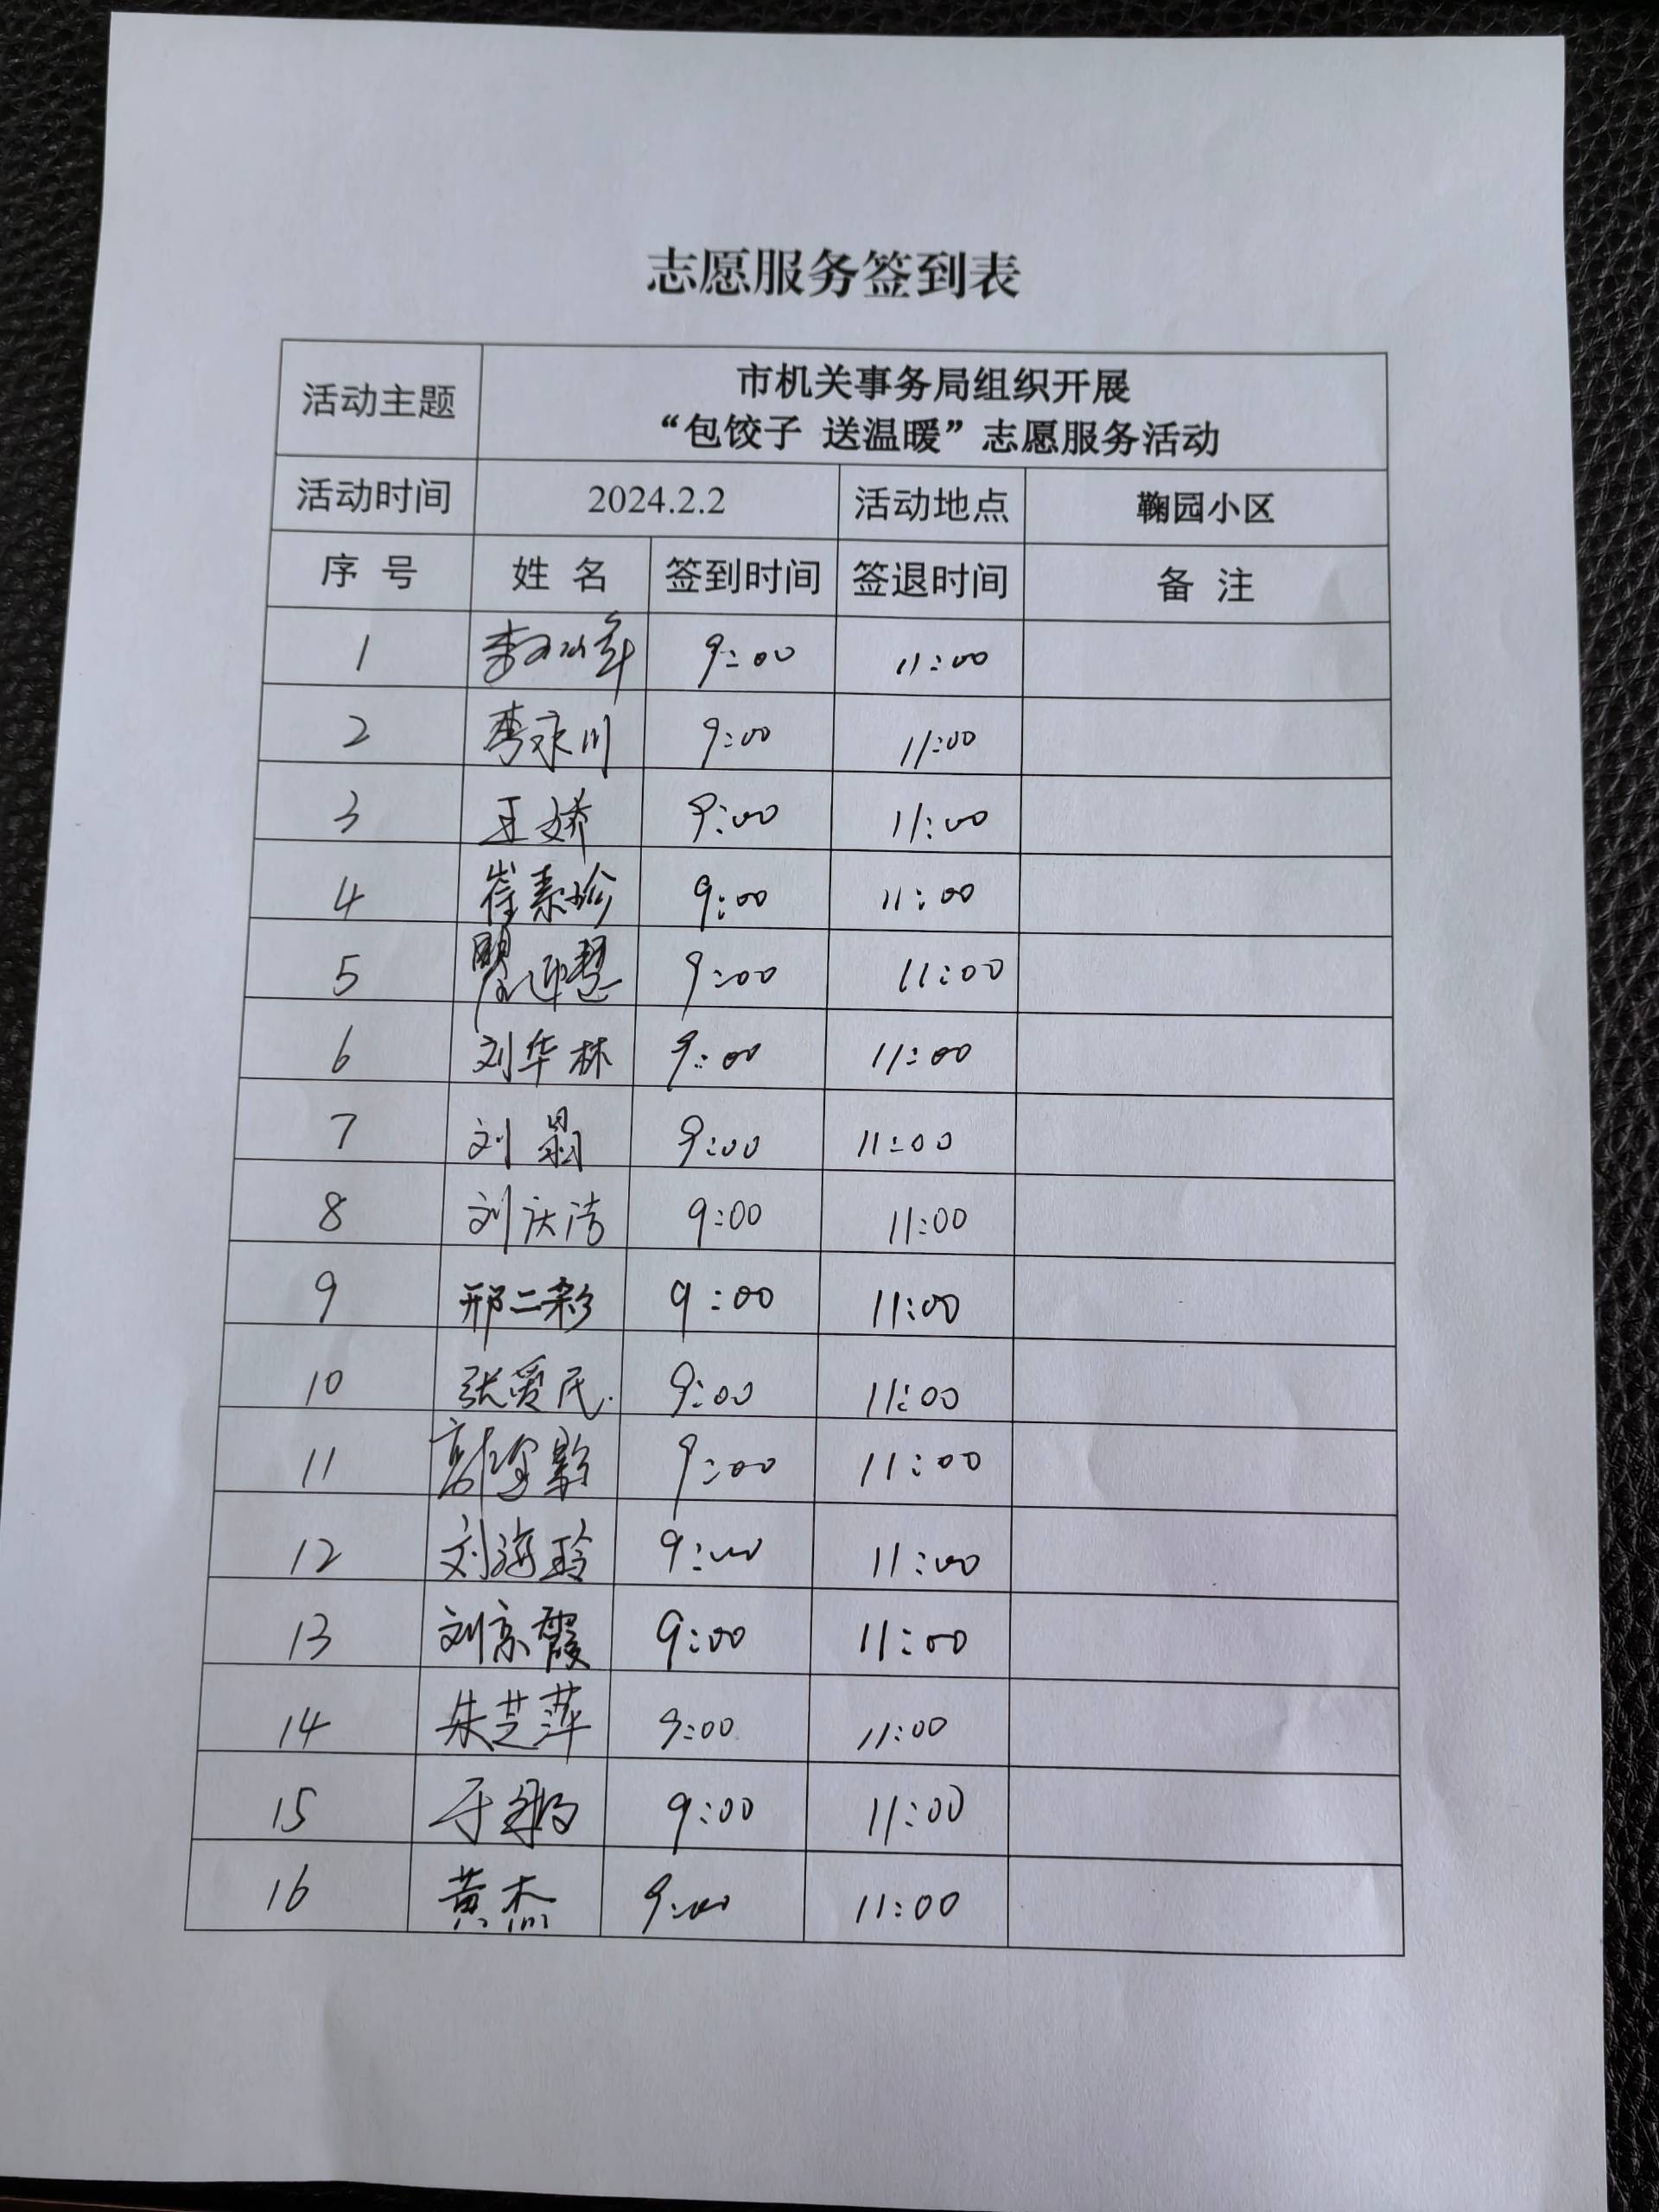 志愿服务签到表
活动主题 市机关事务局组织开展
“包饺子 送温暖”志愿服务活动
活动时间 2024.2.2 活动地点 鞠园小区
序 号 姓 名 签到时间 签退时间 备 注
1 李 9:00 11:00
2 李永川 9:00 11:00
3 王娇 9:00 11:00
4 崔素珍 9:00 11:00
5 9:00 11:00
6 刘华林 9:00 11:00
7 刘 9:00 11:00
8 刘庆洁 9:00 11:00
9 邢二彩 9:00 11:00
10 张爱民 9:00 11:00
11 9:00 11:00
12 刘海玲 9:00 11:00
13 刘京霞 9:00 11:00
14 朱芝萍 9:00 11:00
15 于 9:00 11:00
16 黄杰 9:00 11:00